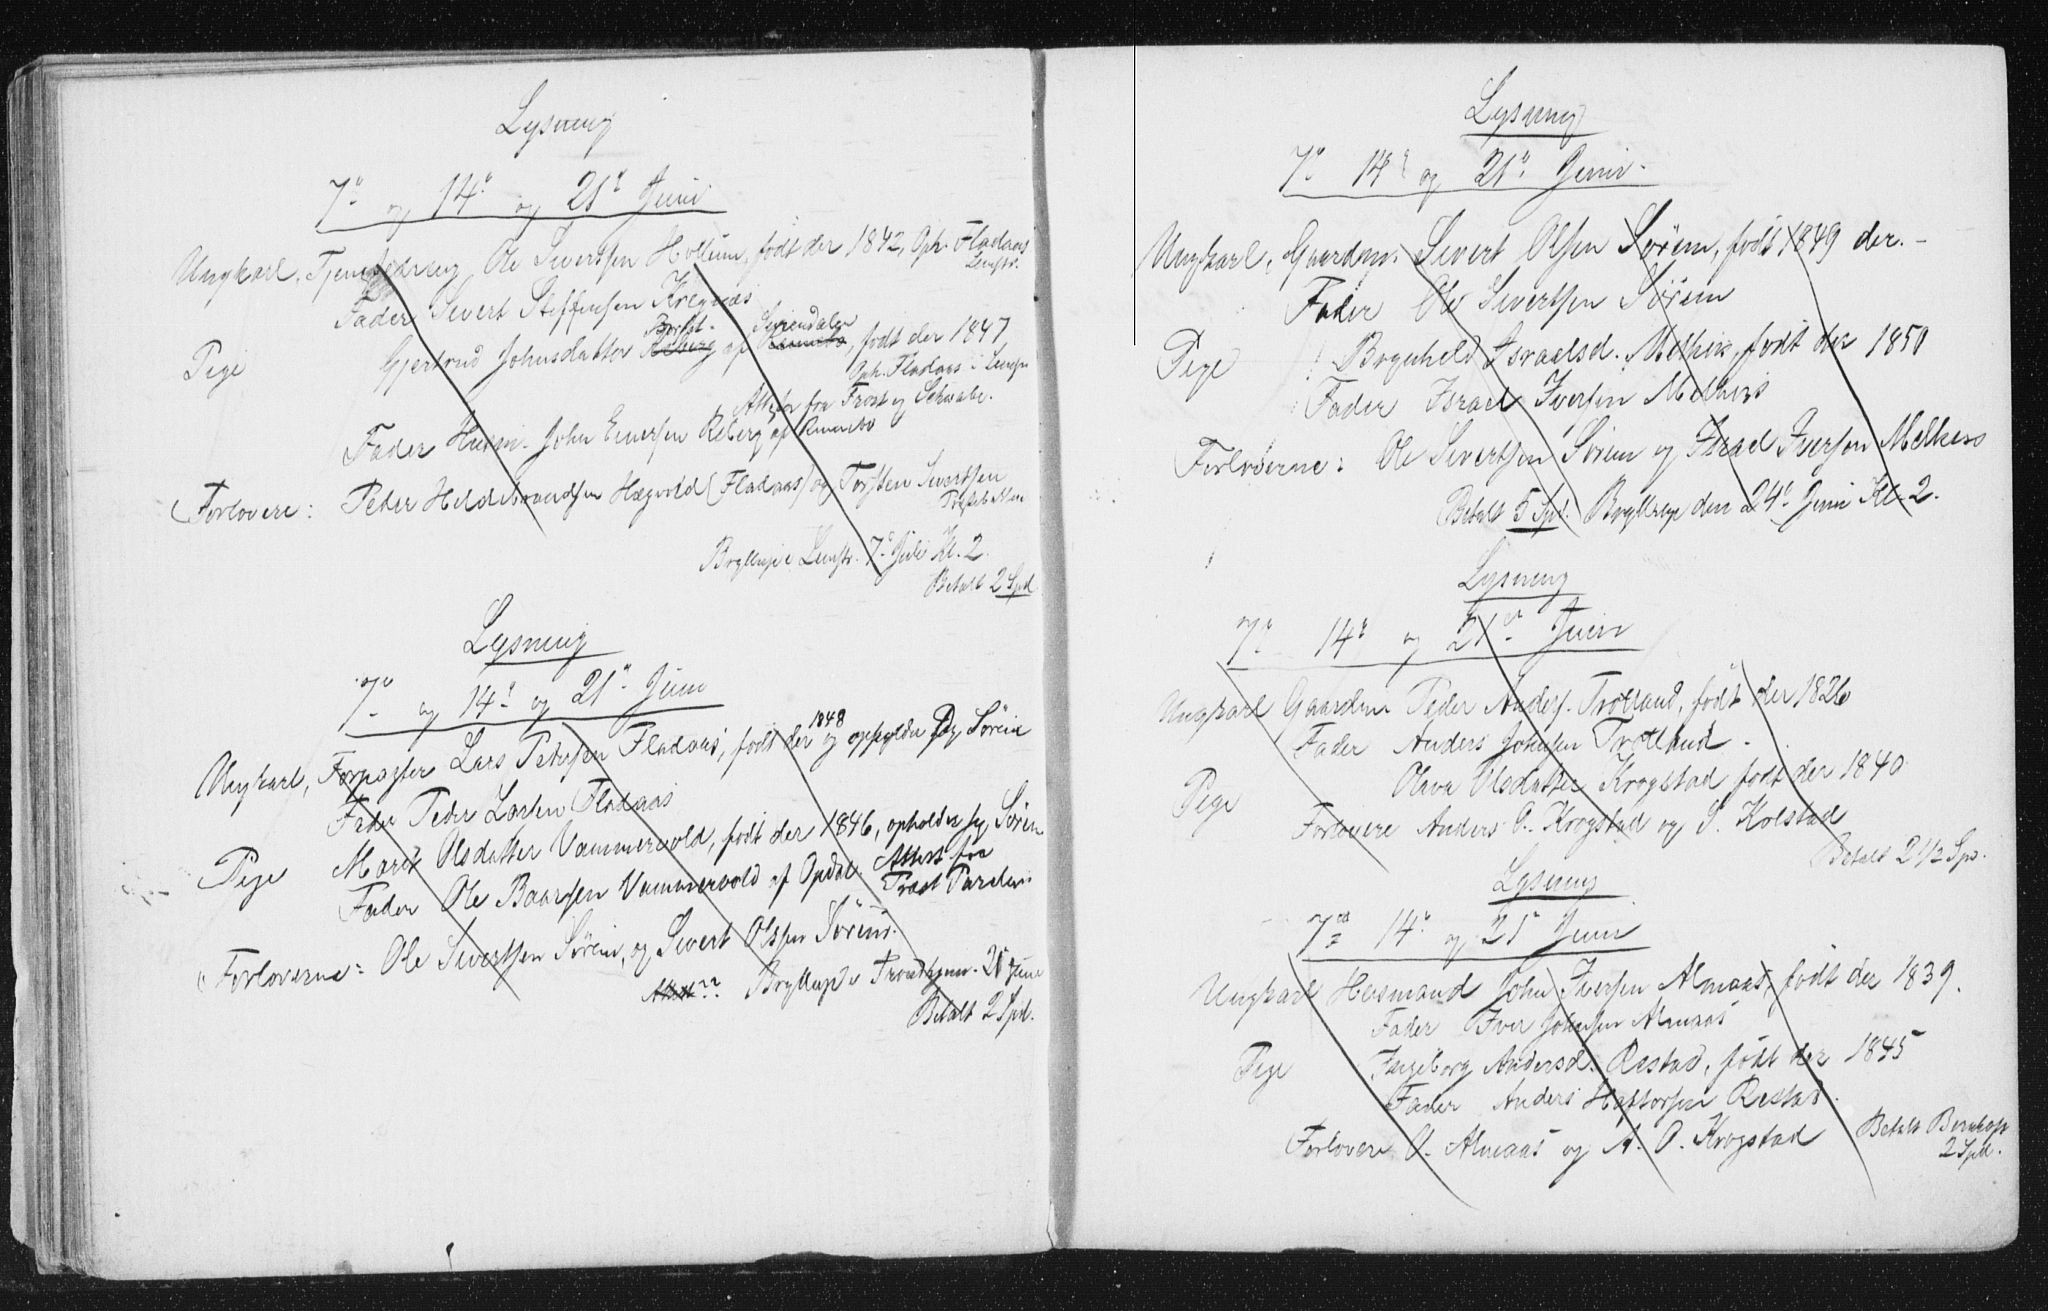 Lysning
7de og 14de og 21de Juni
Ungkarl, Ole Sivertsen Hollum, født der 1842, Oph. Fladaas
Lenstr.
Fader Sivert Steffensen Kregnæs
Borst. Surendalen
Pige Gjertrud Johnsdatter Reberg af Rennebo, født der 1847
Oph. Fladaas i Lenstr
Attester fra Frost og Schwabe.
Fader Husm. John Enersen Reberg af Rennebo
Forlovere: Peder Hildebrandsen Hægvold (Fladaas) og Torsten Sivertsen
Bryllup i Lenstr. 7de Juli Kl. 2.
Betalt 2 Spd.
Lysning
7de og 14de og 21de Juni
1848
Ungkarl, Forpagter Lars Petersen Fladaas, født der og opholder sig Sørem
Fader Peder Larsen Fladaas
Pige Marit Olsdatter Vammervold, født der 1846, opholder sig Sørem
Fader Ole Baarsen Vammervold af Opdal. Attest fra
Forloverne: Ole Sivertsen Sørem, og Sivert Olsen Sørem.
Attest?? Bryllup i Trondhjem. 25 Juni
Betalt 2 Spd.
Lysning
7de 14de og 21de Juni.
Ungkarl, Gaardm. Sivert Olsen Sørem, født 1849 der. -
Fader Ole Sivertsen Sørem
Pige Brynhild Israelsd. Melhus, født der 1850
Fader Israel Iversen Melhus
Forloverne: Ole Sivertsen Sørem og Israel Iversen Melhus
Betalt 5 Spd. Bryllup den 24de Juni Kl. 2.
Lysning
7de 14de og 21de Juni
Ungkarl Gaardm Peder Anders. Trotland, født der 1826
Fader Anders Johnsen Trotland.
Pige Olava Olsdatter Krogstad født der 1840
Forlovere Anders O. Krogstad og S. Kolstad
Betalt 2 1/2 Spd.
Lysning
7de 14de og 21de Juni
Ungkarl Husmand John Iversen Almaas, født der 1839.
Fader Iver Johnsen Almaas
Pige Ingeborg Andersd. Ræstad, født der 1845
Fader Anders Haftorsen Ræstad.
Forlovere O. Almaas og A. O. Krogstad Betalt
2 Spd.